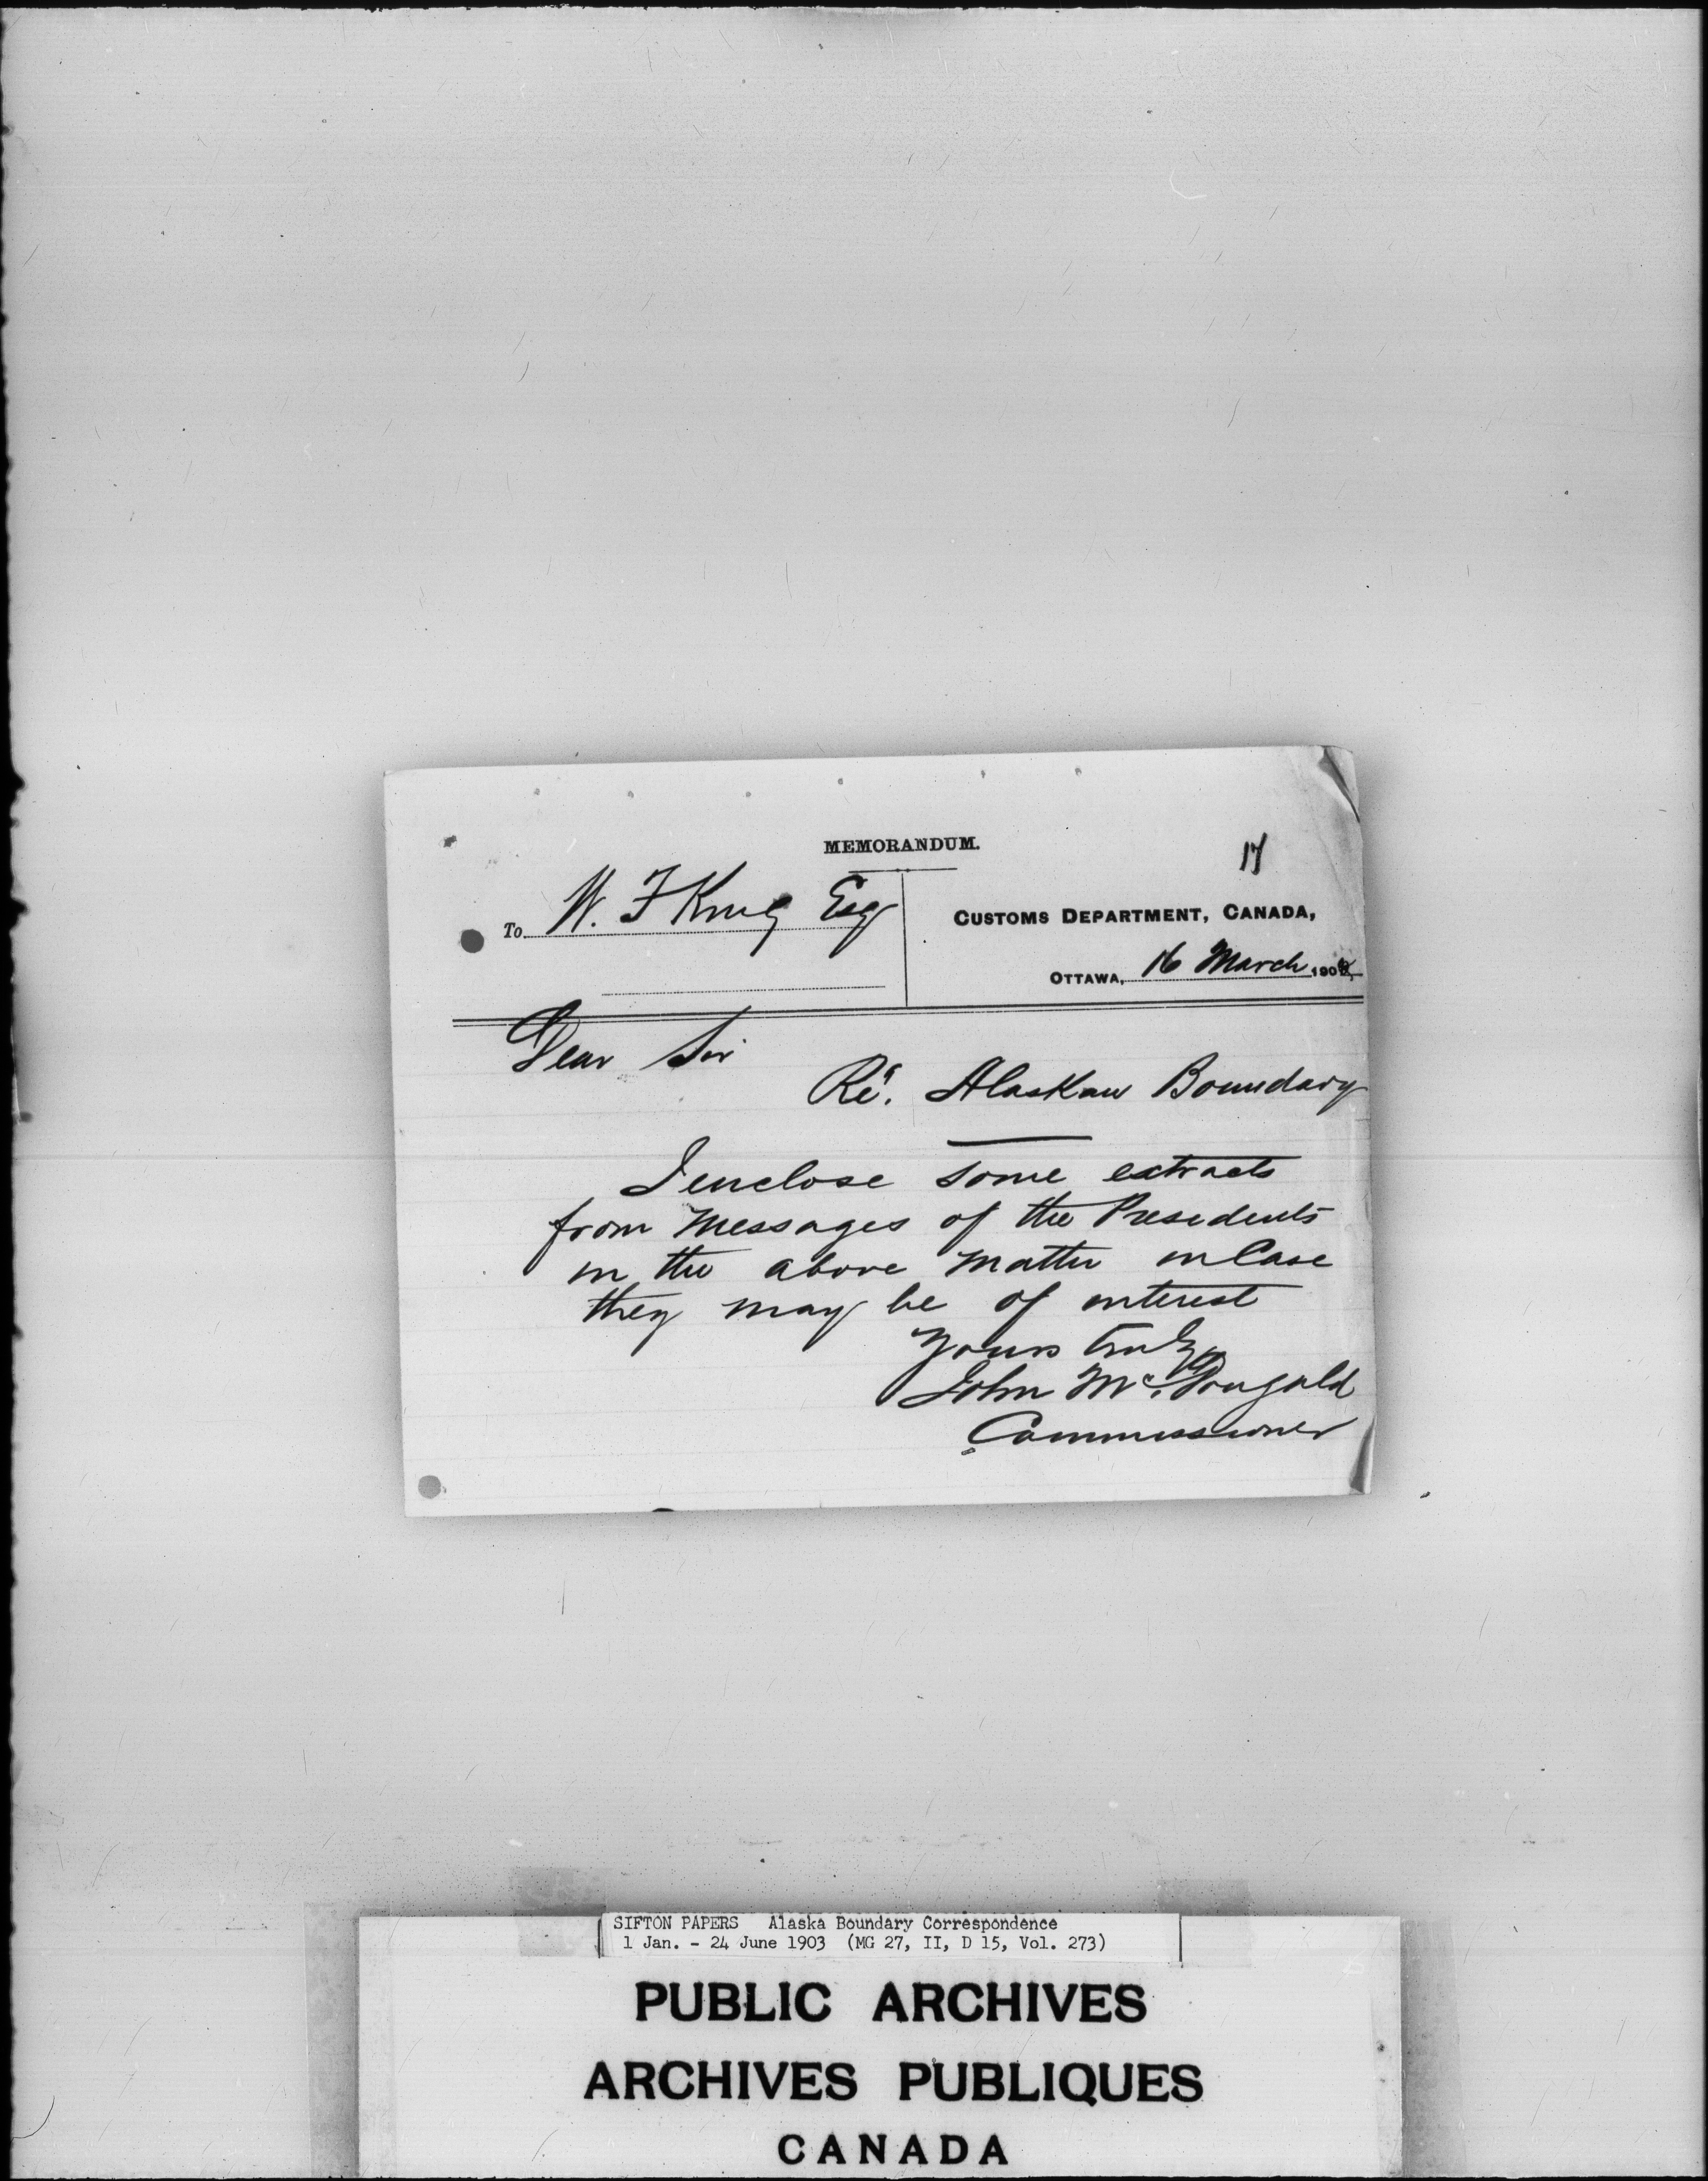 MEMORANDUM.
17
To W. F King Esq
CUSTOMS DEPARTMENT, CANADA,
OTTAWA, 16 March 190
Dear Sir
Re. Alaskan Boundary
I enclose some extracts
from Messages of the Presidents
in the above matter in Case
they may be of interest
Yours truly
John McDougald
Commissioner
SIFTON PAPERS Alaska Boundary Correspondence
1 Jan. - 24 June 1903 (MG 27, II, D 15, Vol. 273)
PUBLIC ARCHIVES
ARCHIVES PUBLIQUES
CANADA